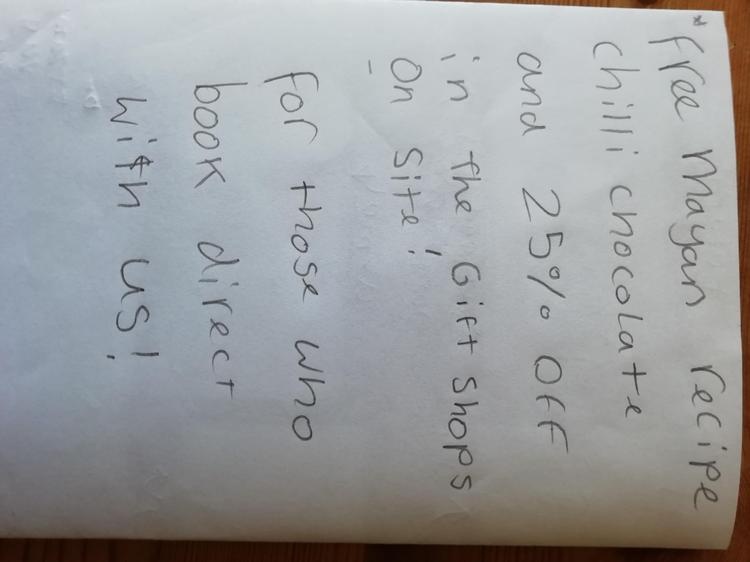 *free Mayan recipe
chilli chocolate
and 25% Off
in the Gift Shops
On Site!
for those who
book direct
with us!